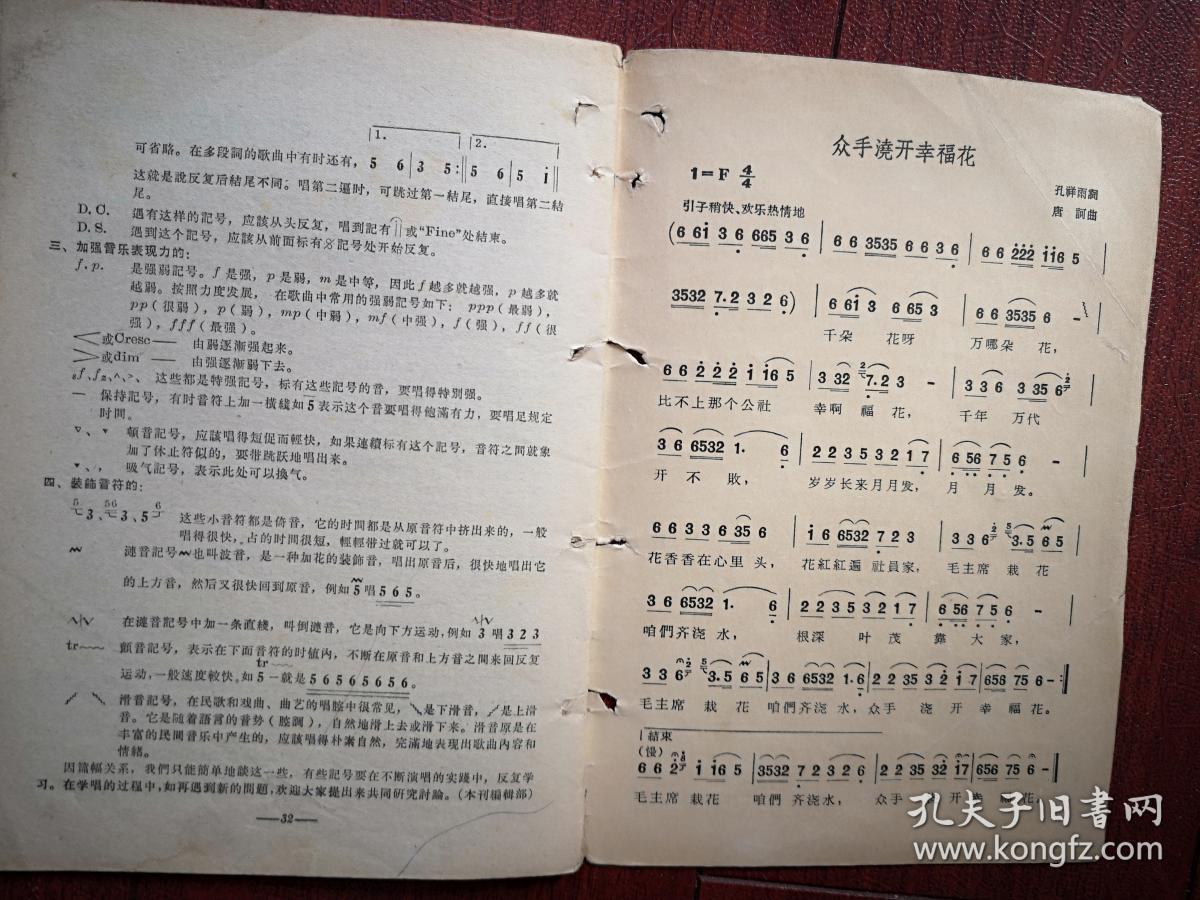 1. 2.
可省略。在多段詞的歌曲中有时还有， 5 6 | 3 5 :‖ 5 6 | 5 i ‖
这就是說反复后結尾不同。唱第二遍时，可跳过第一結尾，直接唱第二結
尾。
D.C. 遇有这样的記号，应該从头反复，唱到記有 或“Fine”处結束。
D.S. 遇到这个記号，应該从前面标有 記号处开始反复。
三、加强音乐表現力的：
f.p. 是强弱記号。f 是强，p 是弱，m 是中等，因此 f 越多就越强，p 越多就
越弱。按照力度发展，在歌曲中常用的强弱記号如下：ppp（最弱），
pp（很弱），p（弱），mp（中弱），mf（中强），f（强），ff（很
强），fff（最强）。
＜或Cresc—— 由弱逐漸强起来。
＞或dim —— 由强逐漸弱下去。
sf、fz、^、>、 这些都是特强記号，标有这些記号的音，要唱得特別强。
— 保持記号，有时音符上加一橫綫如5表示这个音要唱得飽滿有力，要唱足規定
时間。
▿、▾ 頓音記号，应該唱得短促而輕快，如果連續标有这个記号，音符之間就象
加了休止符似的，要带跳跃地唱出来。
▾、, 吸气記号，表示此处可以換气。
四、裝飾音符的：
3、3、5 这些小音符都是倚音，它的时間都是从原音符中挤出来的，一般
唱得很快，占的时間很短，輕輕带过就可以了。
漣音記号 也叫波音，是一种加花的裝飾音，唱出原音后，很快地唱出它
的上方音，然后又很快回到原音，例如 5 唱 5 6 5。
在漣音記号中加一条直綫，叫倒漣音，它是向下方运动，例如 3 唱 3 2 3
tr 顫音記号，表示在下面音符的时値內，不断在原音和上方音之間来回反复
tr
运动，一般速度較快，如 5 —就是 5 6 5 6 5 6 5 6。
滑音記号，在民歌和戏曲、曲艺的唱腔中很常見， 是下滑音， 是上滑
音。它是随着語言的音势（腔調），自然地滑上去或滑下来。滑音原是在
丰富的民間音乐中产生的，应該唱得朴素自然，完滿地表現出歌曲內容和
情緒。
因篇幅关系，我們只能簡单地談这一些，有些記号要在不断演唱的实踐中，反复学
习。在学唱的过程中，如再遇到新的問題，欢迎大家提出来共同研究討論。（本刊編輯部）
—32—
众手澆开幸福花
1=F 4/4
孔祥雨詞
唐 訶曲
引子稍快、欢乐热情地
(6 6i 3 6 665 3 6 | 6 6 3535 6 6 3 6 | 6 6 222 ii6 5 |
3532 7.2 3 2 6) | 6 6i 3 6 65 3 | 6 6 3535 6 - |
千朵 花呀 万哪朵 花，
6 6 2 2 2 i i6 5 | 3 32 7.2 3 - | 3 3 6 3 35 6 |
比不上那个公社 幸啊 福 花， 千年 万代
3 6 6532 1. 6 | 2 2 3 5 3 2 1 7 | 6 56 7 5 6 - |
开 不 敗， 岁岁长来月月发， 月 月 发。
6 6 3 3 6 35 6 | i 6 6532 7 2 3 | 3 3 6 3.5 6 5 |
花香香在心里 头， 花紅紅遍 社員家， 毛主席 栽 花
3 6 6532 1. 6 | 2 2 3 5 3 2 1 7 | 6 56 7 5 6 - |
咱們齐浇 水， 根深 叶 茂 靠 大 家，
3 3 6 3.5 6 5 | 3 6 6532 1.6 | 2 2 35 3 2 i 7 | 656 75 6 - :‖
毛主席 栽 花 咱們齐浇 水，众手 浇 开 幸 福 花。
結束
(慢)
6 6 2 i i6 5 | 3532 7 2 3 2 6 | 2 2 35 32 i7 | 656 75 6 - ‖
毛主席 栽花 咱們 齐浇水， 众手 浇 开 幸福 花。
孔夫子旧書网
www.kongfz.com